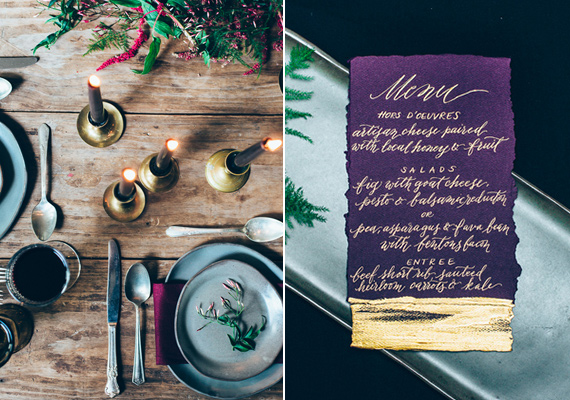 Menu
HORS D'OEUVRES
artisan cheese paired
with local honey & fruit
SALADS
fig with goat cheese,
pesto & balsamic reduction
OR
pea, asparagus & fava bean
with bentons bacon
ENTREE
beef short rib, sauteed
heirloom carrots & kale